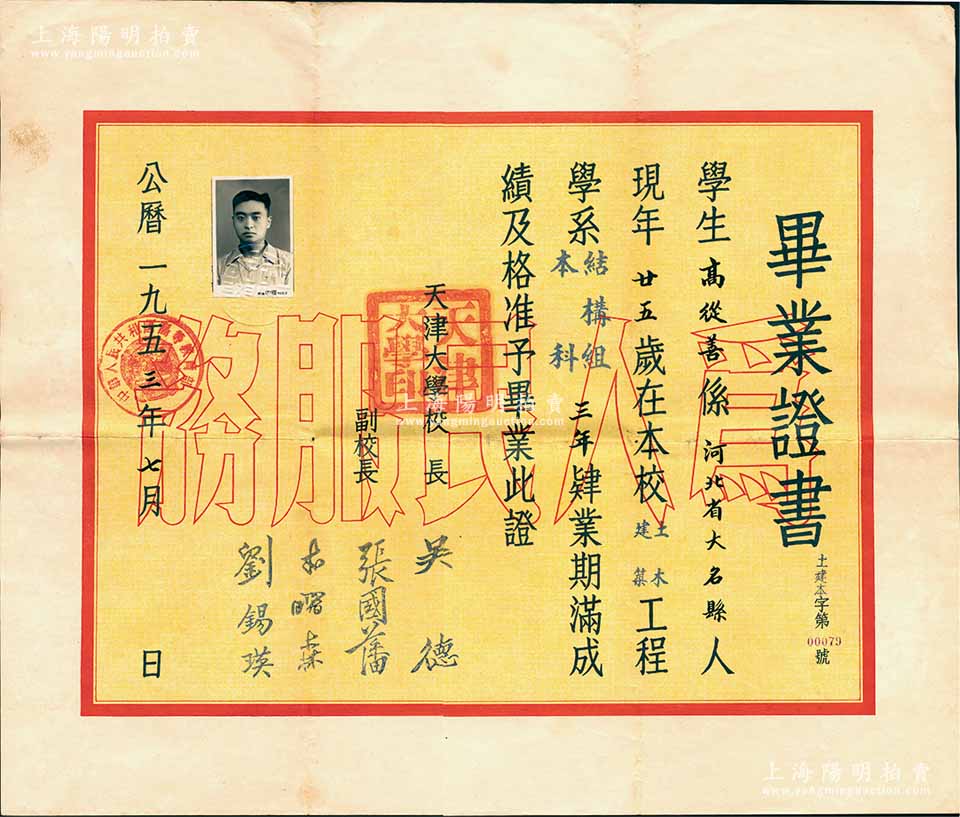 上海陽明拍賣
www.yangmingauction.com
上海陽明拍賣
www.yangmingauction.com
畢業證書
土建本字第
00079
號
學生高從善係河北省大名縣人
現年廿五歲在本校土木建築工程
學系結構組本科三年肄業期滿成
績及格准予畢業此證
天津大學校長
吴德
副校長
張國藩
劉錫瑛
公曆一九五三年七月 日
天津大學印
為人民服務
上海陽明拍賣
www.yangmingauction.com
上海陽明拍賣
www.yangmingauction.com